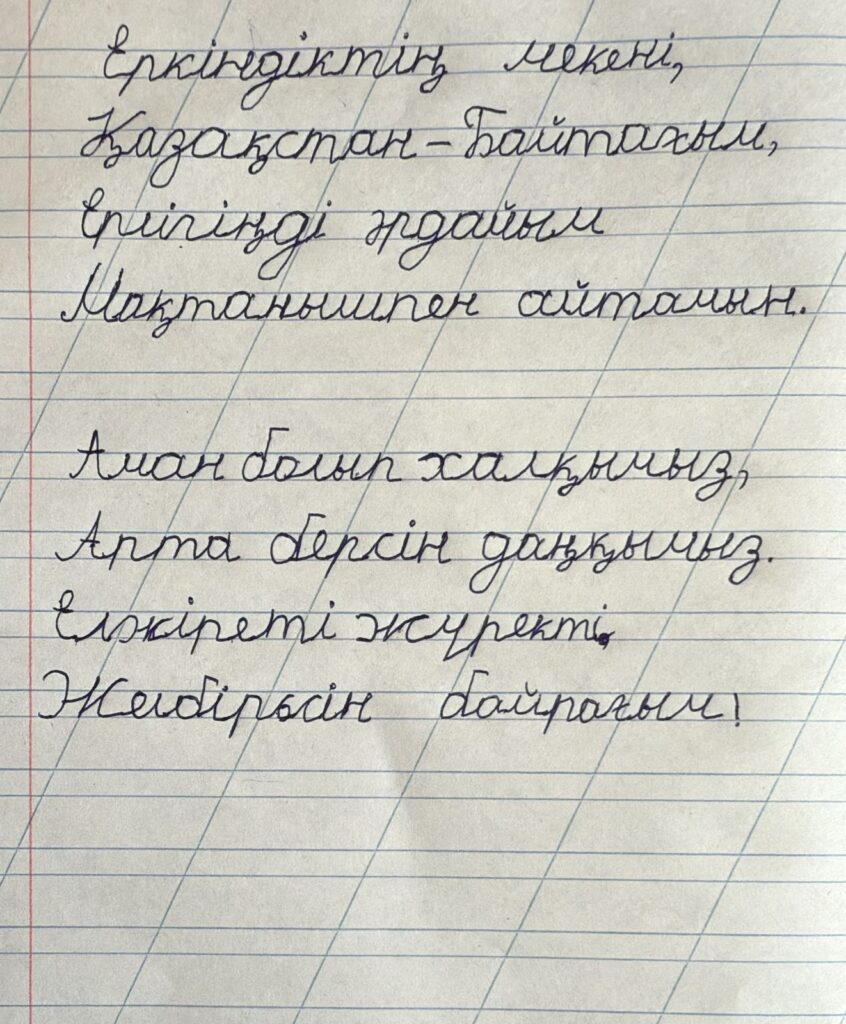 Еркіндіктің мекені,
Қазақстан - Байтағым,
Ерлігіңді әрдайым
Мақтанышпен айтамын.
Аман болып халқымыз,
Арта берсін даңқымыз.
Елжіретіп жүректі,
Желбіресін байрағым!